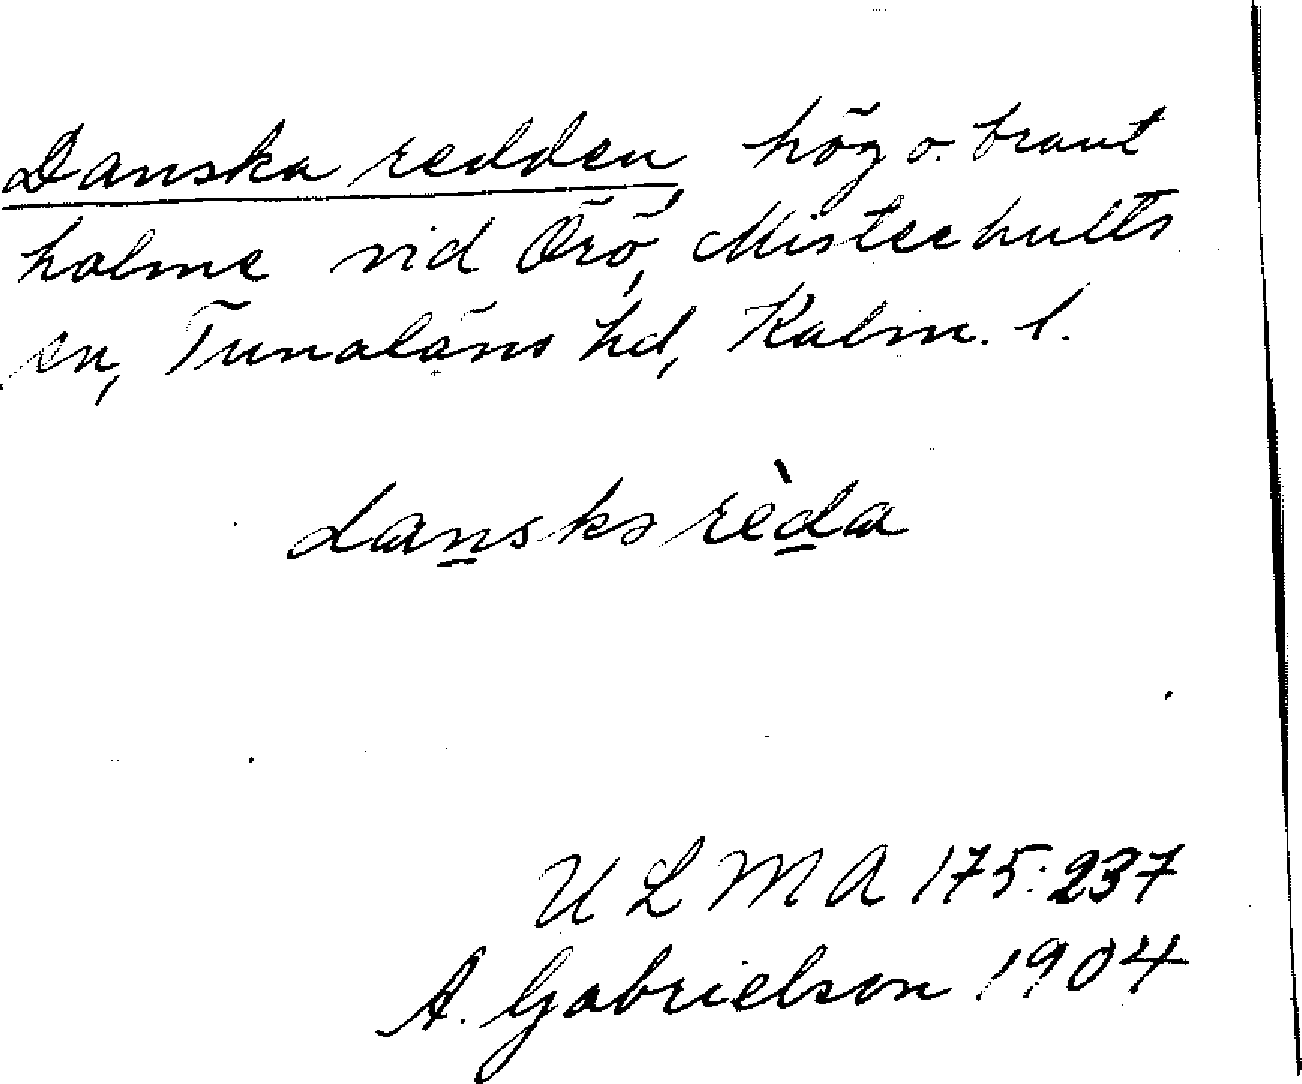 Danska redden, hög o. brant
holme vid Örö, Misterhults
sn, Tunaläns hd, Kalm. l.
dansks rèda
U L M A 175:237
A. Gabrielson 1904